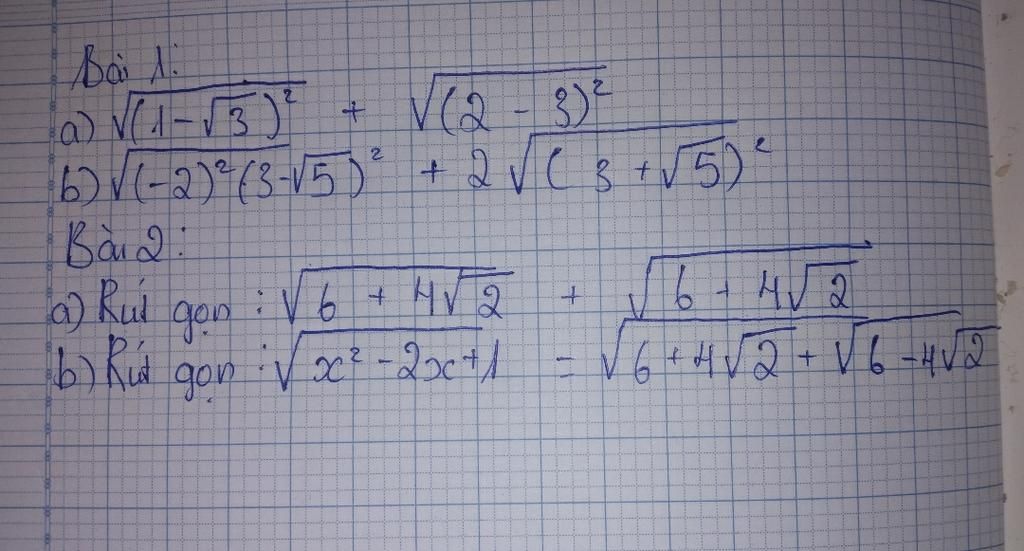 Bài 1:
a) √(1-√3)² + √(2 - 3)²
b) √(-2)²(3-√5)² + 2√(3 + √5)²
Bài 2:
a) Rút gọn : √6 + 4√2 + √6 + 4√2
b) Rút gọn : √x² - 2x + 1 = √6 + 4√2 + √6 - 4√2